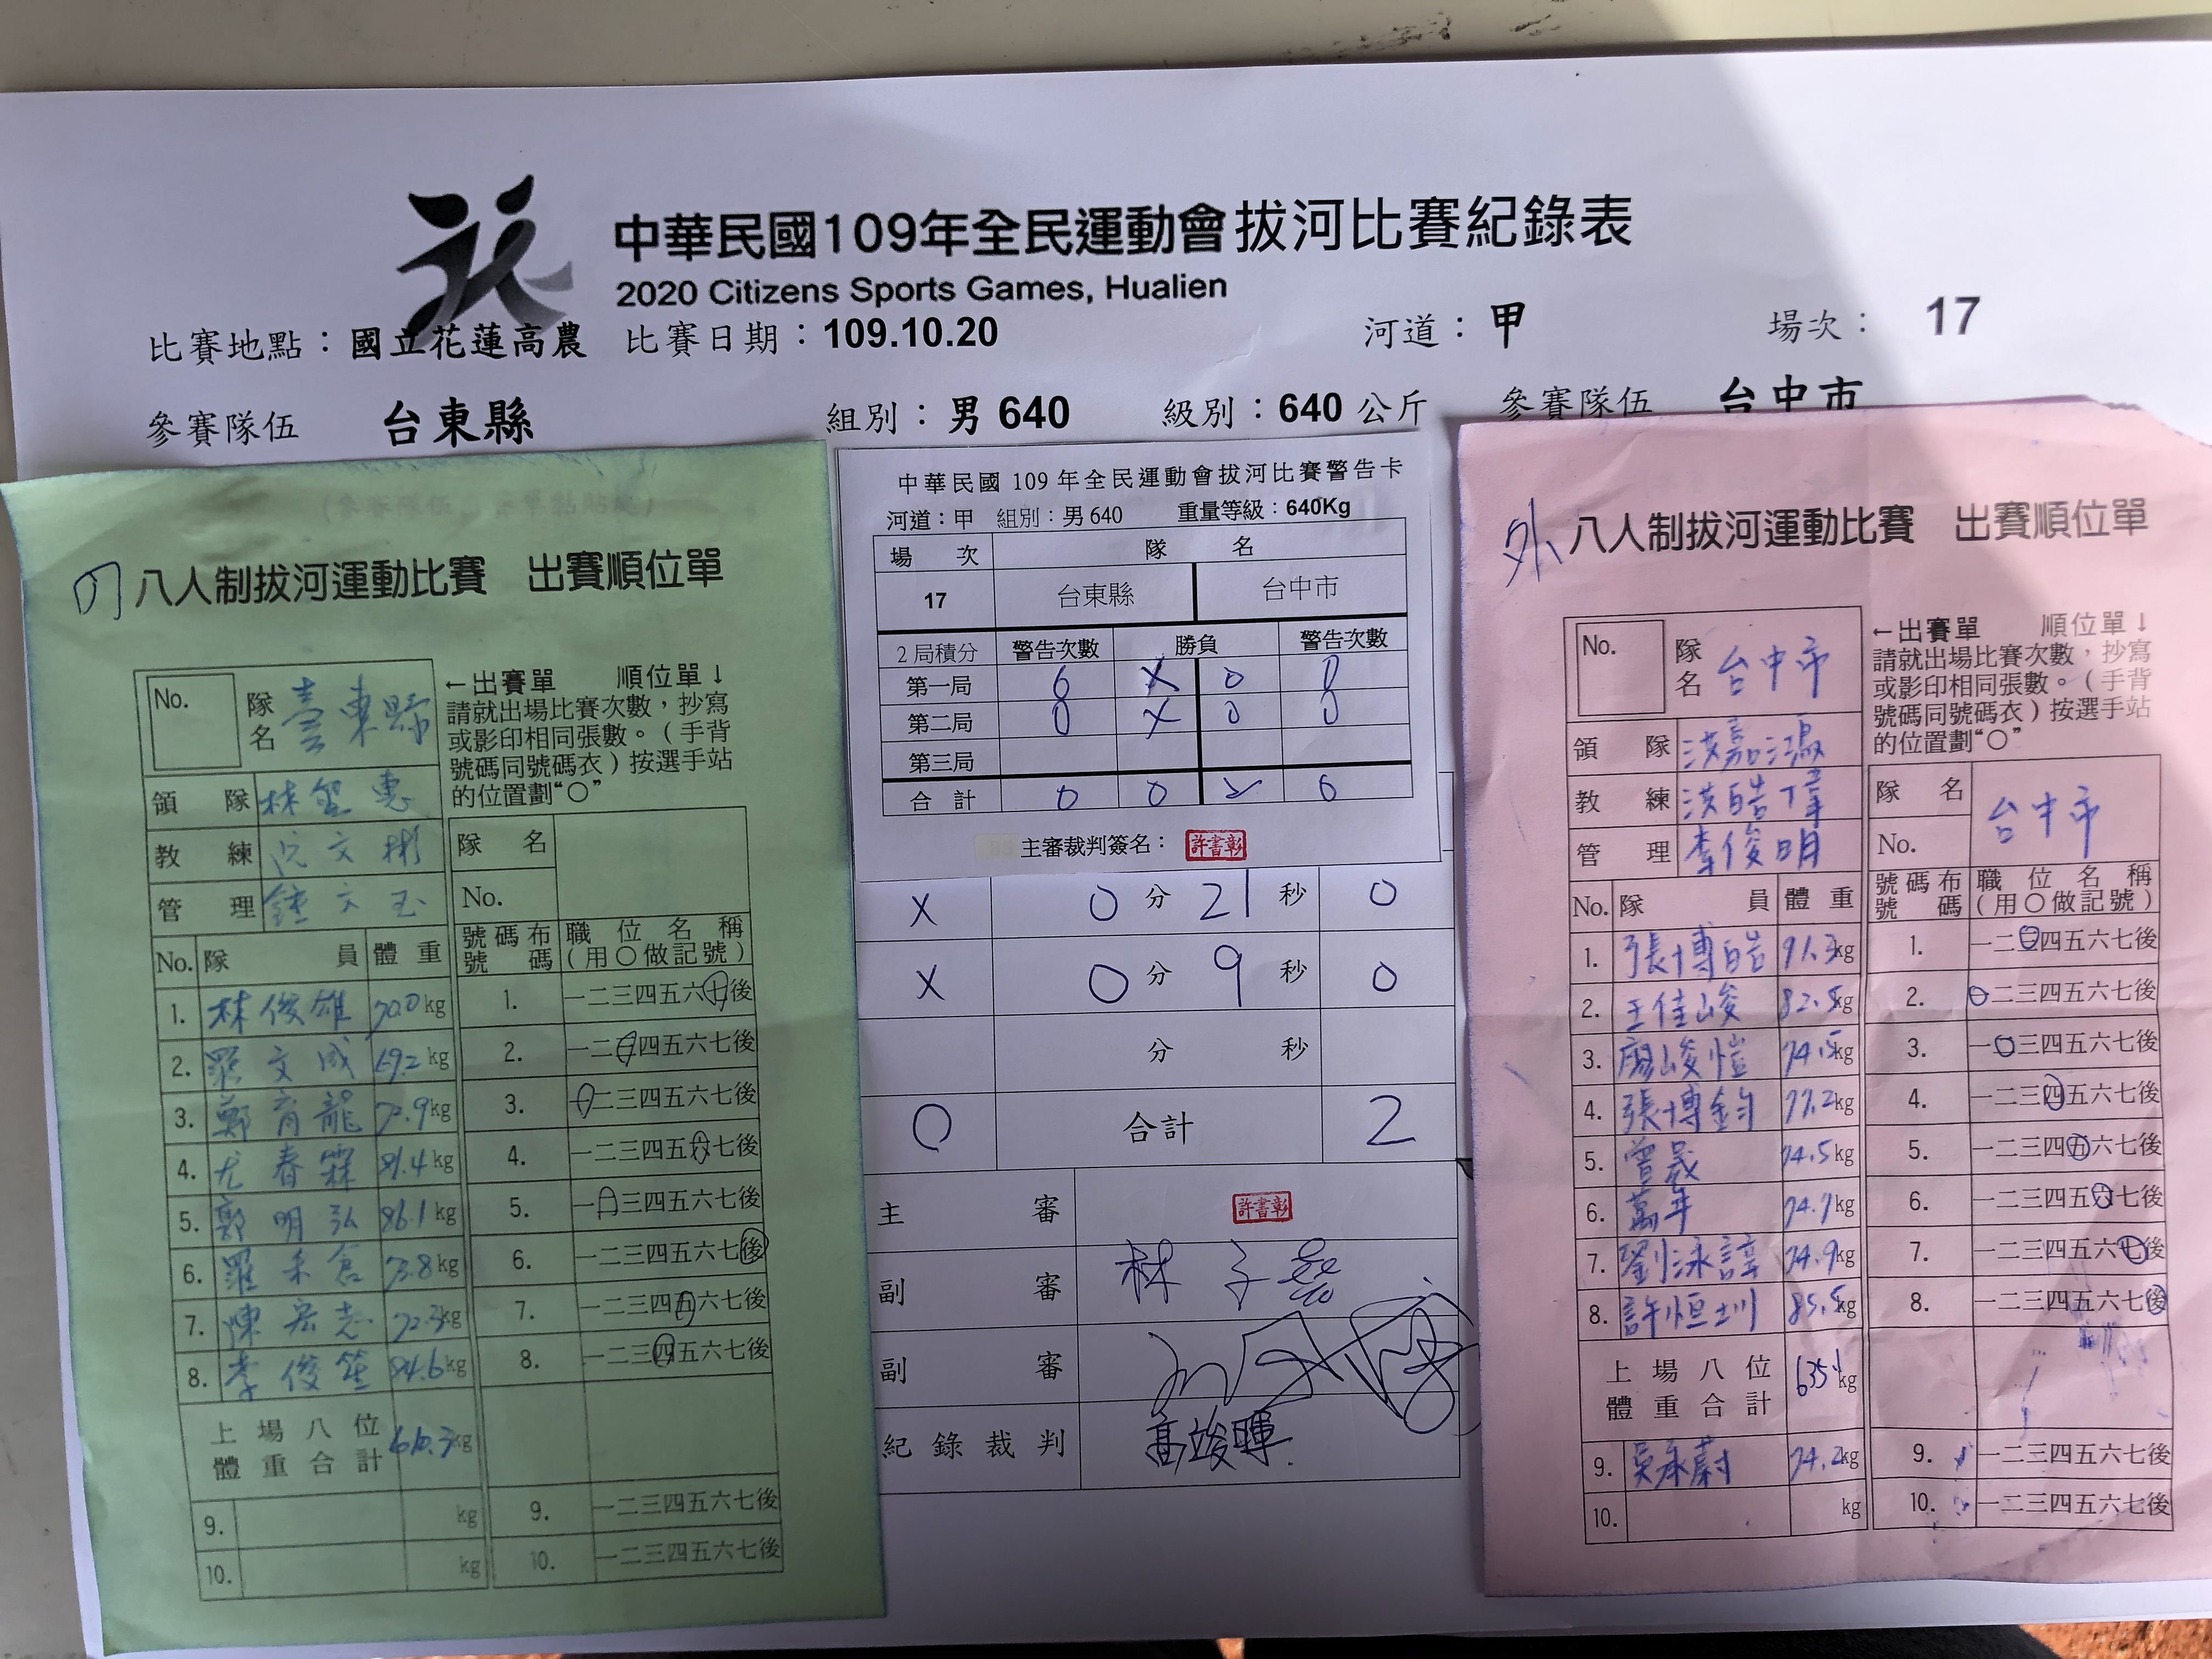 中華民國109年全民運動會拔河比賽紀錄表
2020 Citizens Sports Games, Hualien
比賽地點：國立花蓮高農 比賽日期：109.10.20 河道：甲 場次： 17
參賽隊伍 台東縣 組別：男 640 級別：640 公斤 參賽隊伍 台中市
內
八人制拔河運動比賽 出賽順位單
No.
隊名 臺東縣
←出賽單 順位單↓
請就出場比賽次數，抄寫
或影印相同張數。（手背
號碼同號碼衣）按選手站
的位置劃“○”
領 隊
教 練 文彬
管 理 鍾文玉
隊 名
No.
No. 隊 員 體 重
號碼布號碼 職位名稱（用○做記號）
1. 林俊雄 70.0 kg 1. 一二三四五六七後
2. 羅文成 69.2 kg 2. 一二三四五六七後
3. 鄭育龍 72.9 kg 3. 一二三四五六七後
4. 尤春霖 81.4 kg 4. 一二三四五六七後
5. 鄭明弘 86.1 kg 5. 一二三四五六七後
6. 羅禾倉 73.8 kg 6. 一二三四五六七後
7. 陳宏志 72.3 kg 7. 一二三四五六七後
8. 李俊笙 84.6 kg 8. 一二三四五六七後
上場八位體重合計 kg
9. kg 9. 一二三四五六七後
10. kg 10. 一二三四五六七後
中華民國 109 年全民運動會拔河比賽警告卡
河道：甲 組別：男 640 重量等級：640Kg
場 次 隊 名
17 台東縣 台中市
2 局積分 警告次數 勝負 警告次數
第一局 0 X 0 0
第二局 0 X 0 0
第三局
合 計 0 0 2 0
主審裁判簽名： 許書彰
X 0 分 21 秒 0
X 0 分 9 秒 0
分 秒
0 合計 2
主 審 許書彰
副 審 林子
副 審
紀 錄 裁 判 高竣暉
外
八人制拔河運動比賽 出賽順位單
No.
隊名 台中市
←出賽單 順位單↓
請就出場比賽次數，抄寫
或影印相同張數。（手背
號碼同號碼衣）按選手站
的位置劃“○”
領 隊 洪嘉鴻
教 練 洪皓瑋
管 理 李俊明
隊 名 台中市
No.
No. 隊 員 體 重
號碼布號碼 職位名稱（用○做記號）
1. 張博皓 91.3 kg 1. 一二三四五六七後
2. 王佳峻 82.5 kg 2. 一二三四五六七後
3. 廖峻愷 74.5 kg 3. 一二三四五六七後
4. 張博鈞 77.2 kg 4. 一二三四五六七後
5. 曾晟 74.5 kg 5. 一二三四五六七後
6. 萬年 74.7 kg 6. 一二三四五六七後
7. 劉泳諄 74.9 kg 7. 一二三四五六七後
8. 許恒圳 85.5 kg 8. 一二三四五六七後
上場八位體重合計 635.1 kg
9. 吳承蔚 74.2 kg 9. 一二三四五六七後
10. kg 10. 一二三四五六七後